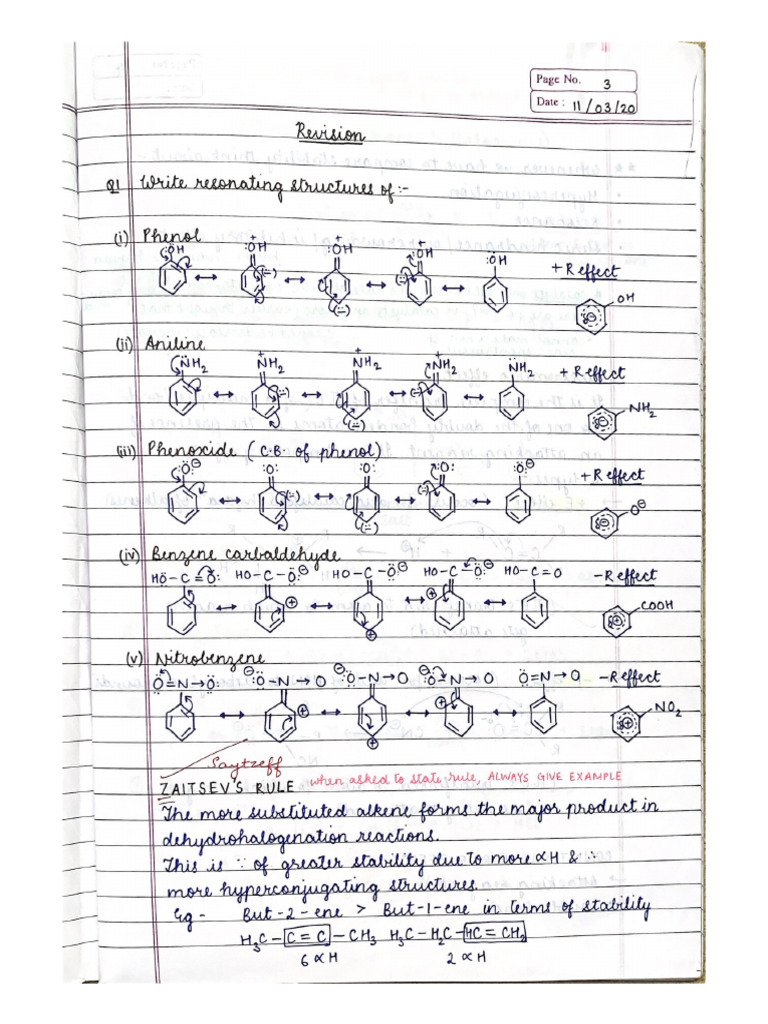 Page No. 3
Date : 11/03/20
Revision
Q1 Write resonating structures of :-
(i) Phenol
:ÖH :OH + :OH + :OH + :OH + R effect
(-) (-) (-) OH
(ii) Aniline
N̈H2 NH2 + NH2 + NH2 + N̈H2 + R effect
(-) (-) (-) NH2
(iii) Phenoxide ( C.B. of phenol)
:Ö:⊖ :O: :O: :O: :Ö:⊖ + R effect
(-) (-) (-) O⊖
(iv) Benzene carbaldehyde
HÖ-C=Ö: HO-C-Ö:⊖ HO-C-Ö:⊖ HO-C-Ö:⊖ HO-C=O -R effect
⊕ ⊕ ⊕ COOH
(v) Nitrobenzene
Ö=N→Ö: ⊖:Ö-N→O ⊖:Ö-N→O ⊖:Ö-N→O Ö=N→O -R effect
⊕ ⊕ ⊕ NO2
Saytzeff
ZAITSEV'S RULE when asked to state rule, ALWAYS GIVE EXAMPLE
The more substituted alkene forms the major product in
dehydrohalogenation reactions.
This is ∵ of greater stability due to more αH & ∴
more hyperconjugating structures.
Eg - But-2-ene > But-1-ene in terms of stability
H3C-C=C-CH3 H3C-H2C-HC=CH2
6 αH 2 αH